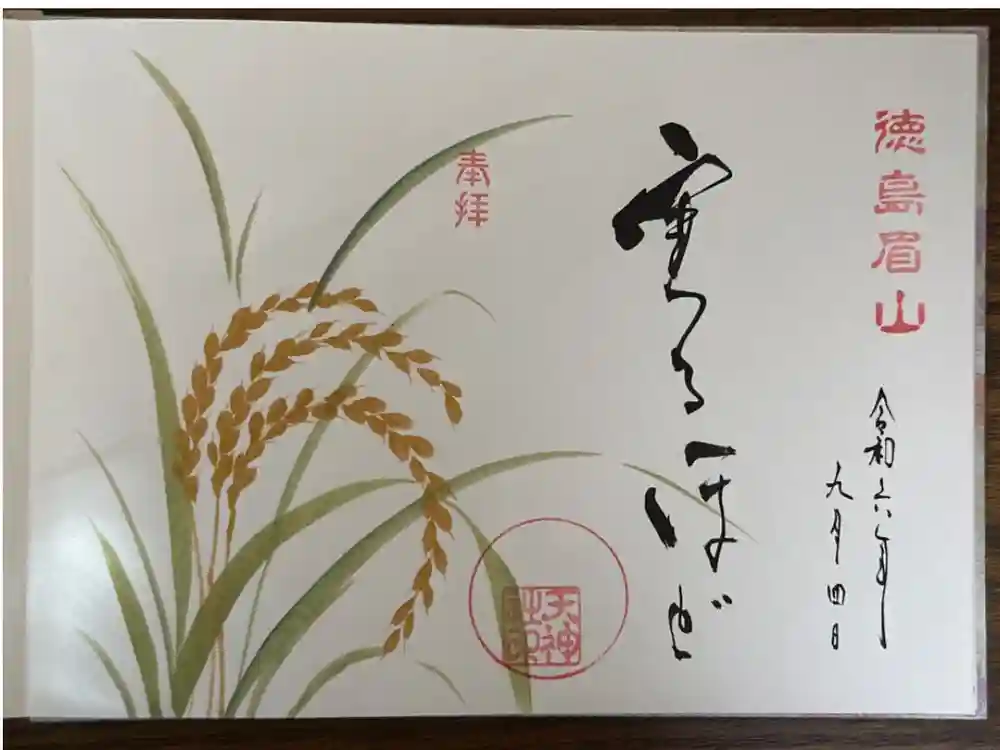 徳島眉山
令和六年
九月四日
実るほど
奉拝
天神
社印